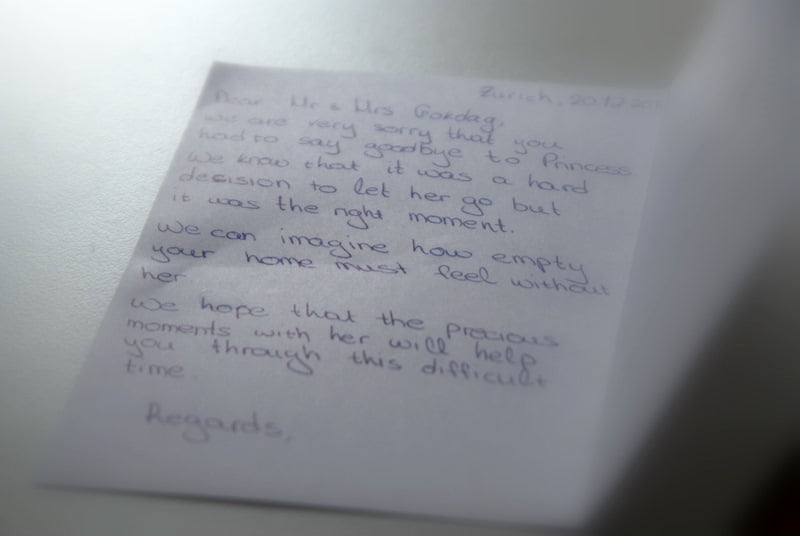 Zurich, 20.12.201
Dear Mr & Mrs Gokdag,
we are very sorry that you
had to say goodbye to Princess
We know that it was a hard
decision to let her go but
it was the right moment.
We can imagine how empty
your home must feel without
her.
We hope that the precious
moments with her will help
you through this difficult
time.
Regards,